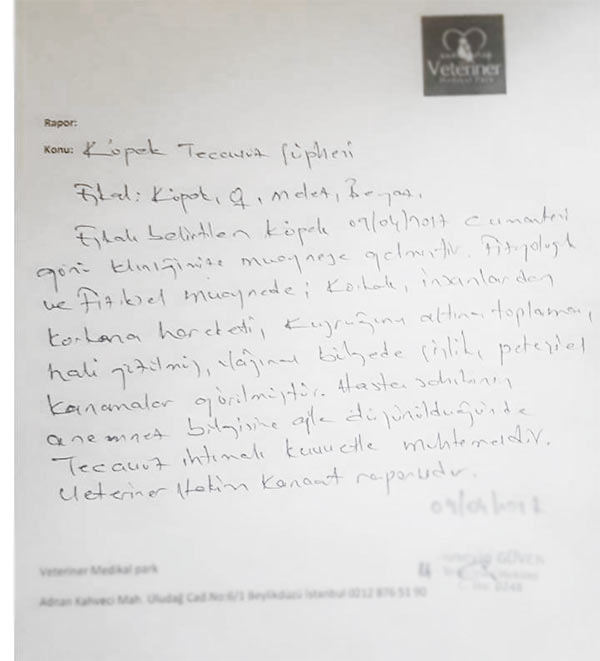 Veteriner
Medikal Park
Rapor:
Konu: Köpek Tecavüz Şüphesi
Eşkal: Köpek, ♀, melez, Beyaz.
Eşkali belirtilen köpek 09/04/2017 Cumartesi
günü kliniğimize muayneye gelmiştir. Fizyolojik
ve Fiziksel muaynede; Korkak, insanlardan
korkma hareketi, kuyruğunu altına toplama,
hali çizilmiş, Vaginal bölgede şişlik, peteşiel
kanamalar görülmüştür. Hasta sahibinin
anemnez bilgisine göre düşünüldüğünde
Tecavüz ihtimali kuvvetle muhtemeldir.
Veteriner Hekim Kanaat raporudur.
09/04/2017
Veteriner Medikal park
GÜVEN
Adnan Kahveci Mah. Uludağ Cad.No:6/1 Beylikdüzü İstanbul 0212 876 51 90